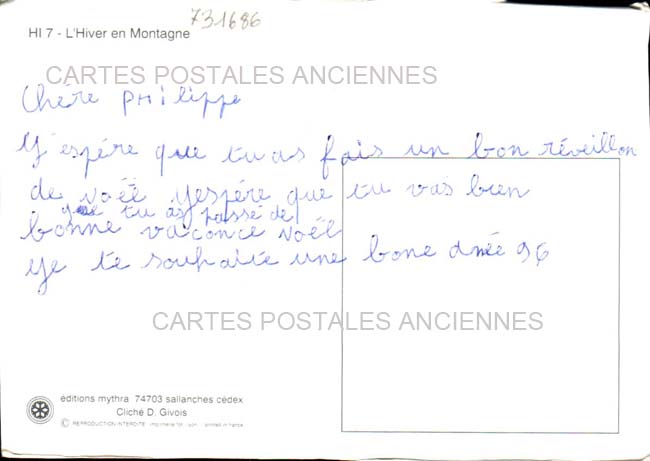 731686
HI 7 - L'Hiver en Montagne
CARTES POSTALES ANCIENNES
Chére PHilippe
J'espére que tu as fais un bon réveillon
de Noël J'espére que tu vas bien
que tu as passé de
bonne vaconce Noël
Je te souhaite une bone anée 96
CARTES POSTALES ANCIENNES
éditions mythra 74703 sallanches cédex
Cliché D. Givois
© REPRODUCTION INTERDITE imprimerie printed in france